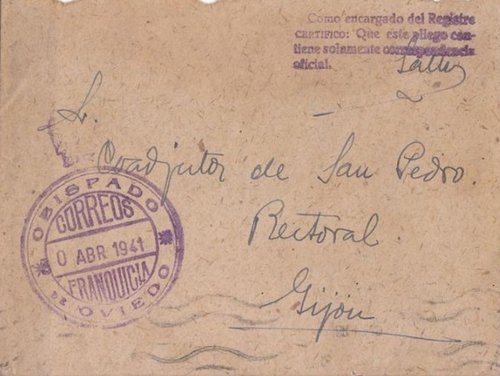 Como encargado del Registro
CERTIFICO: Que este pliego con-
tiene solamente correspondencia
oficial.
S.
Coadjutor de San Pedro.
Rectoral
Gijón
OBISPADO
CORREOS
0 ABR 1941
FRANQUICIA
DE OVIEDO